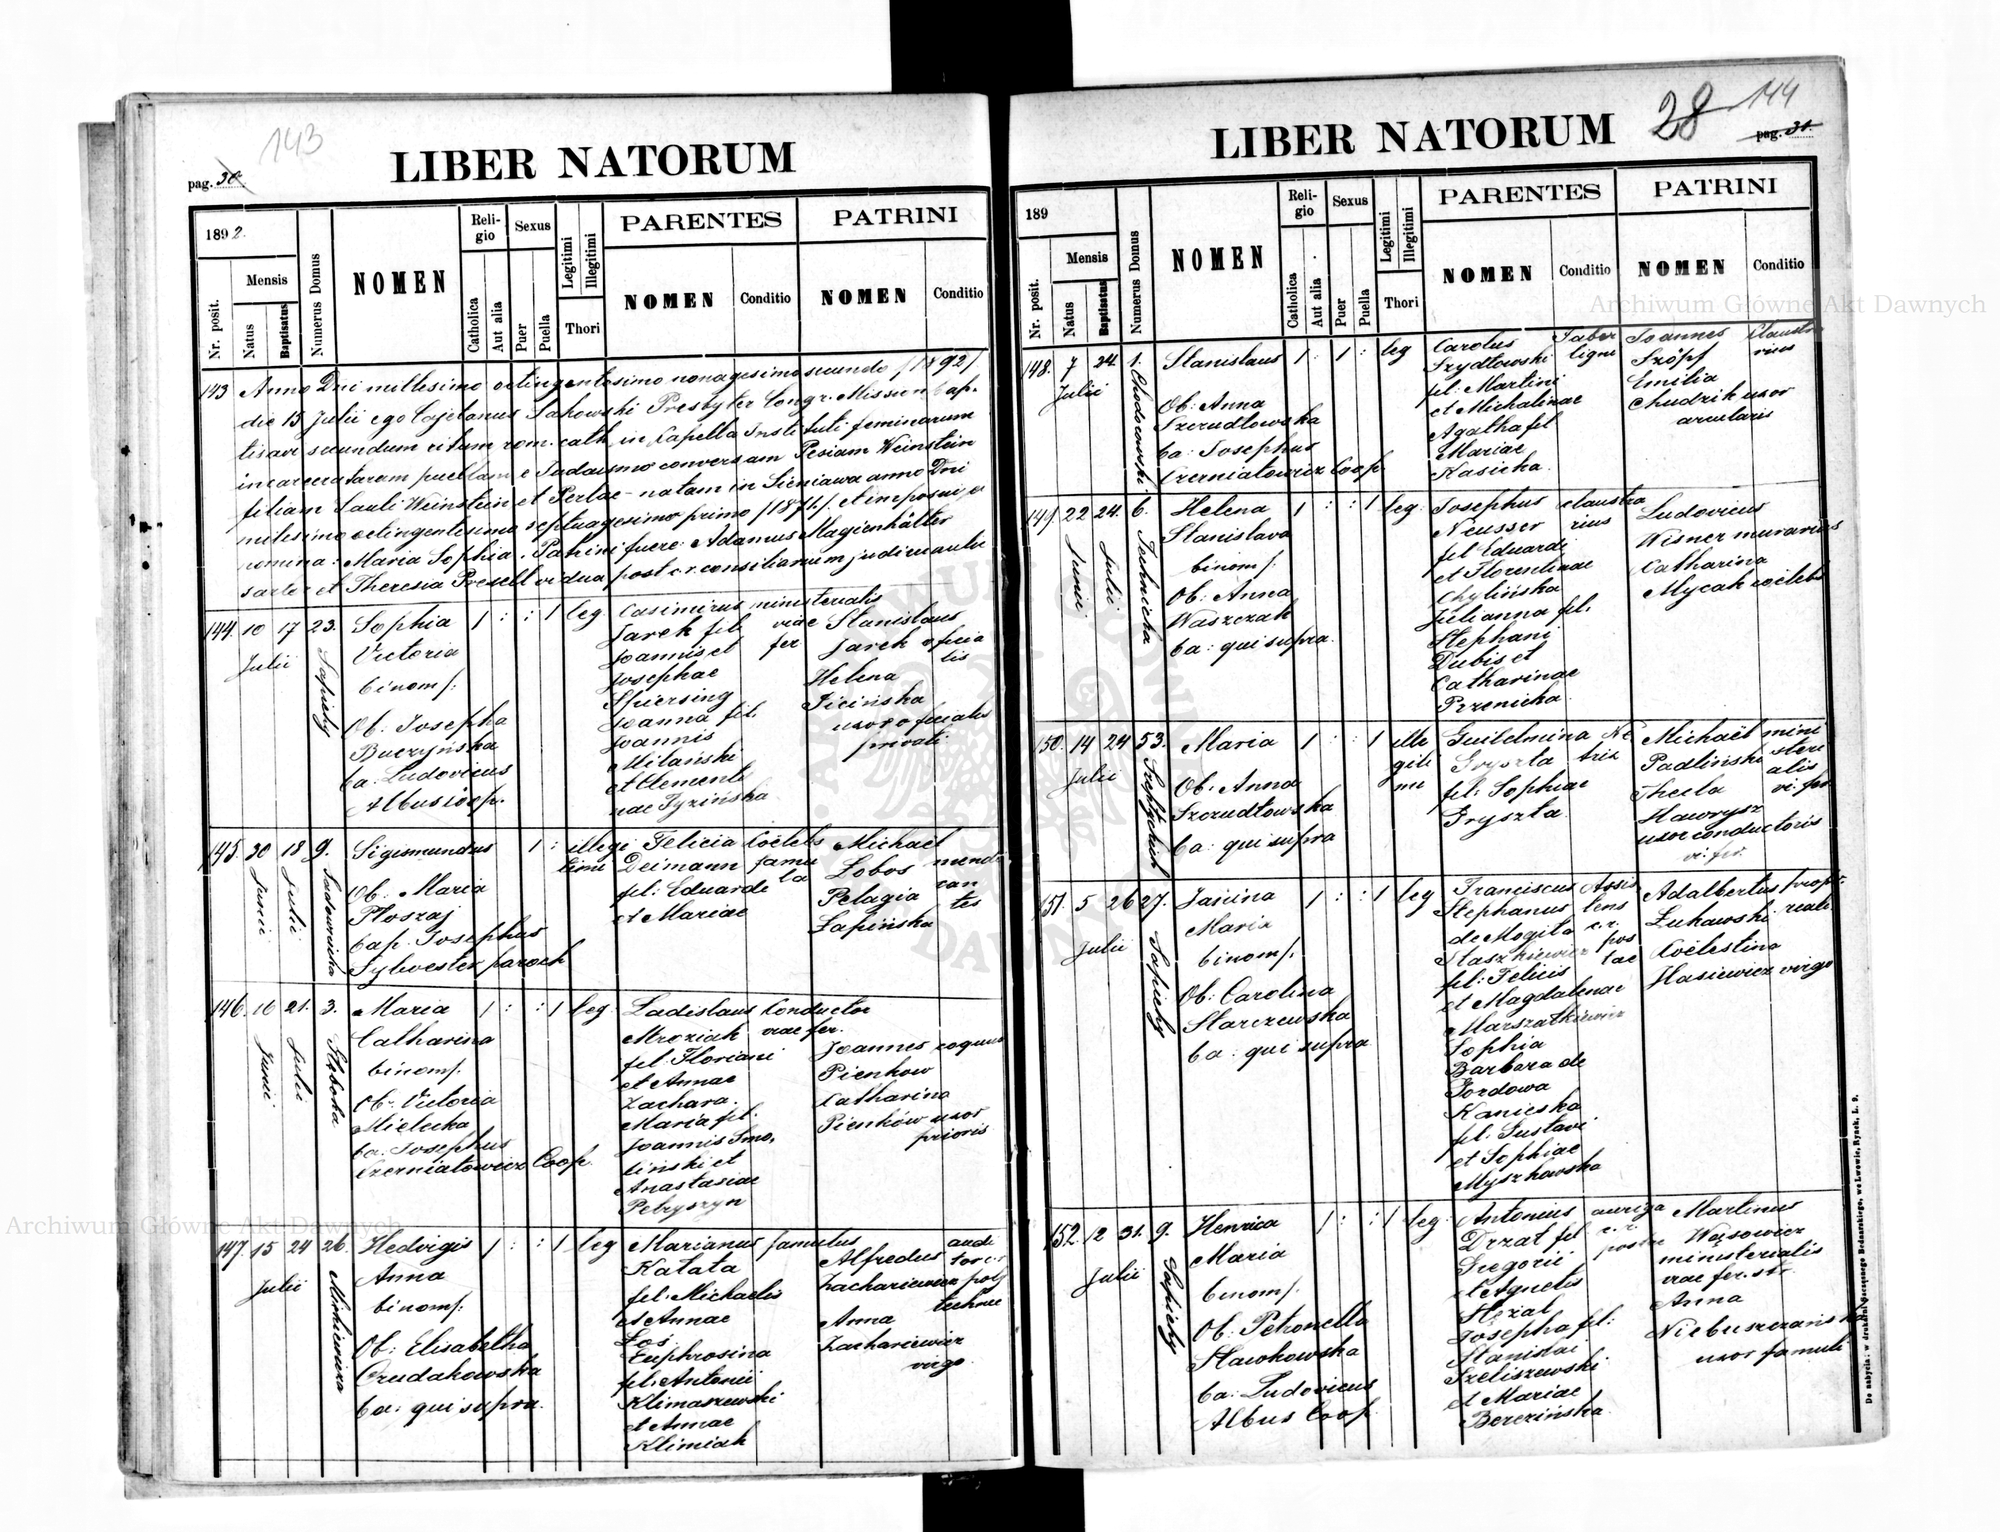 143
pag. 30
LIBER NATORUM
1892.
Nr. posit.
Mensis
Natus
Baptisatus
Numerus Domus
NOMEN
Religio
Catholica
Aut alia
Sexus
Puer
Puella
Legitimi
Illegitimi
Thori
PARENTES
NOMEN
Conditio
PATRINI
NOMEN
Conditio
143 Anno Dni millesimo octingentesimo nonagesimo secundo /1892/
die 15 Julii ego Cajetanus Sakowski Presbyter Congr. Mission bap-
tisavi secundum ritum rom. cath. in Capella Instituti feminarum
incarceratarum puellam e Judaismo conversam Pesiam Weinstein
filiam Sauli Weinstein et Perlae - natam in Sieniawa anno Dni
milesimo octingentesimo septuagesimo primo /1871/. et imposui ei
nomina: Maria Sophia. Patrini fuere: Adamus Magienhälter
sartor et Theresia Presell vidua post c.r. consiliarium judiciarium
144. 10 17 23.
Julii
Sapiehy
Sophia
Victoria
binom/.
Ob: Josepha
Buczyńska
ba: Ludovicus
Albus coop.
1 : : 1 leg.
Casimirus ministerialis
Jarek fil. viae
Joannis et fer
Josephae
Spiersing
Joanna fil.
Joannis
Milański
et Clementi
nae Tyzińska
Stanislaus
Jarek oficia
lis
Helena
Jicińska
uxor oficialis
privati
145. 30 18 9.
Junii
Julii
Sadownicka
Sigismundus
Ob: Maria
Płoszaj
bap. Josephus
Sylwester paroch
1 : illegi
timi
Felicia Coelebs
Deimann famu
fil: Eduardi la
et Mariae
Michaël
Lobos mendi
Pelagia can
Łapińska tes
146. 16 21. 3.
Junii
Julii
Głęboka
Maria
Catharina
binom/.
Ob: Victoria
Mielecka
ba. Josephus
Czerniatowicz Coop.
1 : : 1 leg.
Ladislaus Conductor
Mroziak viae fer.
fil: Floriani
et Annae
Zachara.
Maria fil.
Joannis Smo,
liński et
Anastasiae
Petryszyn
Joannes coquus
Pienkow
Catharina
Pienków uxor
prioris
147. 15 24 26.
Julii
Mickiewicza
Hedvigis
Anna
binom/.
Ob: Elisabetha
Czudakowska
ba: qui supra.
1 : : 1 leg
Marianus famulus
Katata
fil: Michaelis
et Annae
Łoś
Euphrosina
fil: Antonii
Klimaszewski
et Annae
Klimiak
Alfredus audi
Zachariewicz tor c.r.
poly
technic
Anna
Zachariewicz
virgo.
28 144
pag. 31.
LIBER NATORUM
189
Nr. posit.
Mensis
Natus
Baptisatus
Numerus Domus
NOMEN
Religio
Catholica
Aut alia
Sexus
Puer
Puella
Legitimi
Illegitimi
Thori
PARENTES
NOMEN
Conditio
PATRINI
NOMEN
Conditio
148. 7 24. 1.
Julii
Stanislaus
Ob: Anna
Szczudłowska
ba: Josephus
Czerniatowicz Coop.
1 : 1 : leg
Carolus Faber
Szydłowski ligni
fil: Martini
et Michalinae
Agatha fil
Mariae
Kasicka.
Joannes claustra
Szöpf rius
Emilia
Chudzik uxor
arcularis
149. 22 24. 6.
Junii
Julii
Technicka
Helena
Stanislava
binom/.
Ob: Anna
Waszczak
ba: qui supra.
1 : : 1 leg.
Josephus claustra
Neusser rius
fil Eduardi
et Florentinae
Chylińska
Julianna fil:
Stephani
Dubis et
Catharinae
Przenicka.
Ludovicus
Wisner murarius
Catharina
Mycak coelebs
150. 14 24 53.
Julii
Szeptyckich
Maria
Ob: Anna
Szczudłowska
ba: qui supra
1 : : 1 ille
giti
mi
Guilelmina
Gryszta
fil: Sophiae
Gryszta.
Michaël mini
Padliński steri
Thecla alis
vi. fer.
Hawrysz
uxor conductoris
vi. fer.
151. 5 26 27.
Julii
Sapiehy
Janina
Maria
binom/.
Ob: Carolina
Starczewska
ba: qui supra
1 : : 1 leg
Franciscus Assis
Stephanus tens
de Mogiła c.r.
Staszkiewicz pos
fil: Felicis tae
et Magdalenae
Marszatkiewicz
Sophia
Barbara de
Gozdowa
Kanicska
fil: Gustavi
et Sophiae
Myszkowska
Adalbertus propr.
Łukawski reali.
Coëlestina
Stasiewicz virgo
152. 12 31. 9.
Julii
Sapiehy
Henrica
Maria
binom/.
Ob: Petronella
Sławkowska
ba: Ludovicus
Albus Coop.
1 : : 1 leg.
Antonius auriga
Drzat fil c.r.
Gregorii postae
et Agnetis
Strzał
Josepha fil:
Stanislai
Szeliszewski
et Mariae
Berezińska.
Martinus
Wąsowicz
ministerialis
viae fer. str.
Anna
Niebuszczańska
uxor famuli
Do nabycia: w drukarni Szczęsnego Bednarskiego, we Lwowie, Rynek, L. 9.
Archiwum Główne Akt Dawnych
Archiwum Główne Akt Dawnych